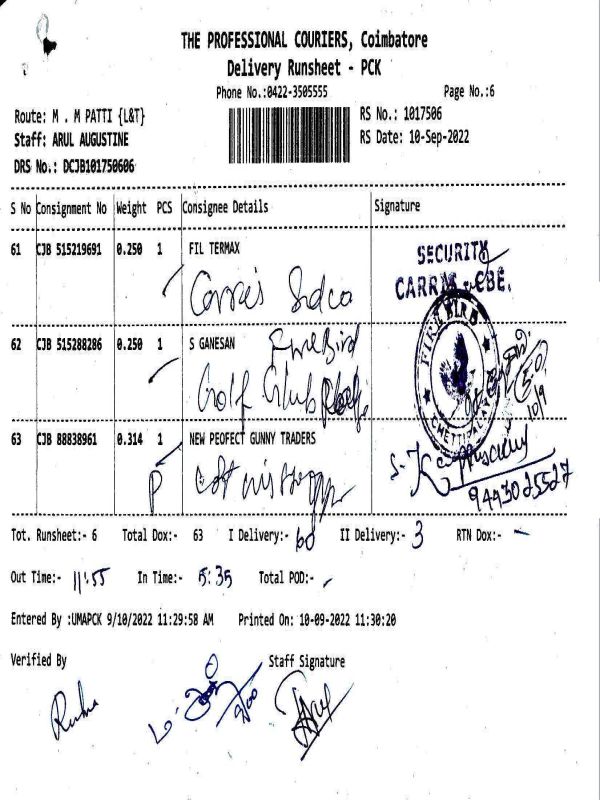 THE PROFESSIONAL COURIERS, Coimbatore
Delivery Runsheet - PCK
Phone No.:0422-3505555 Page No.:6
Route: M . M PATTI {L&T} RS No.: 1017506
Staff: ARUL AUGUSTINE RS Date: 10-Sep-2022
DRS No.: DCJB101750606
S No Consignment No Weight PCS Consignee Details Signature
61 CJB 515219691 0.250 1 FIL TERMAX
SECURITY
CARRIS - CBE.
Carris Sidco
62 CJB 515288286 0.250 1 S GANESAN Fire Bird
FIRE BIRD
Golf Club
CHETTIPALAYAM
10/9
63 CJB 88838961 0.314 1 NEW PEOFECT GUNNY TRADERS
P
9443025527
Tot. Runsheet:- 6 Total Dox:- 63 I Delivery:- 60 II Delivery:- 3 RTN Dox:- -
Out Time:- 11:55 In Time:- 5:35 Total POD:-
Entered By :UMAPCK 9/10/2022 11:29:58 AM Printed On: 10-09-2022 11:30:20
Verified By Staff Signature